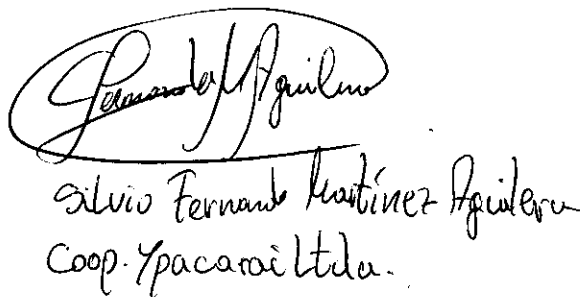 Fernando M Aguilera
Silvio Fernando Martínez Aguilera
Coop. Ypacarai Ltda.